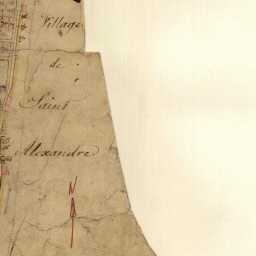 Village
de
Saint
Alexandre
N